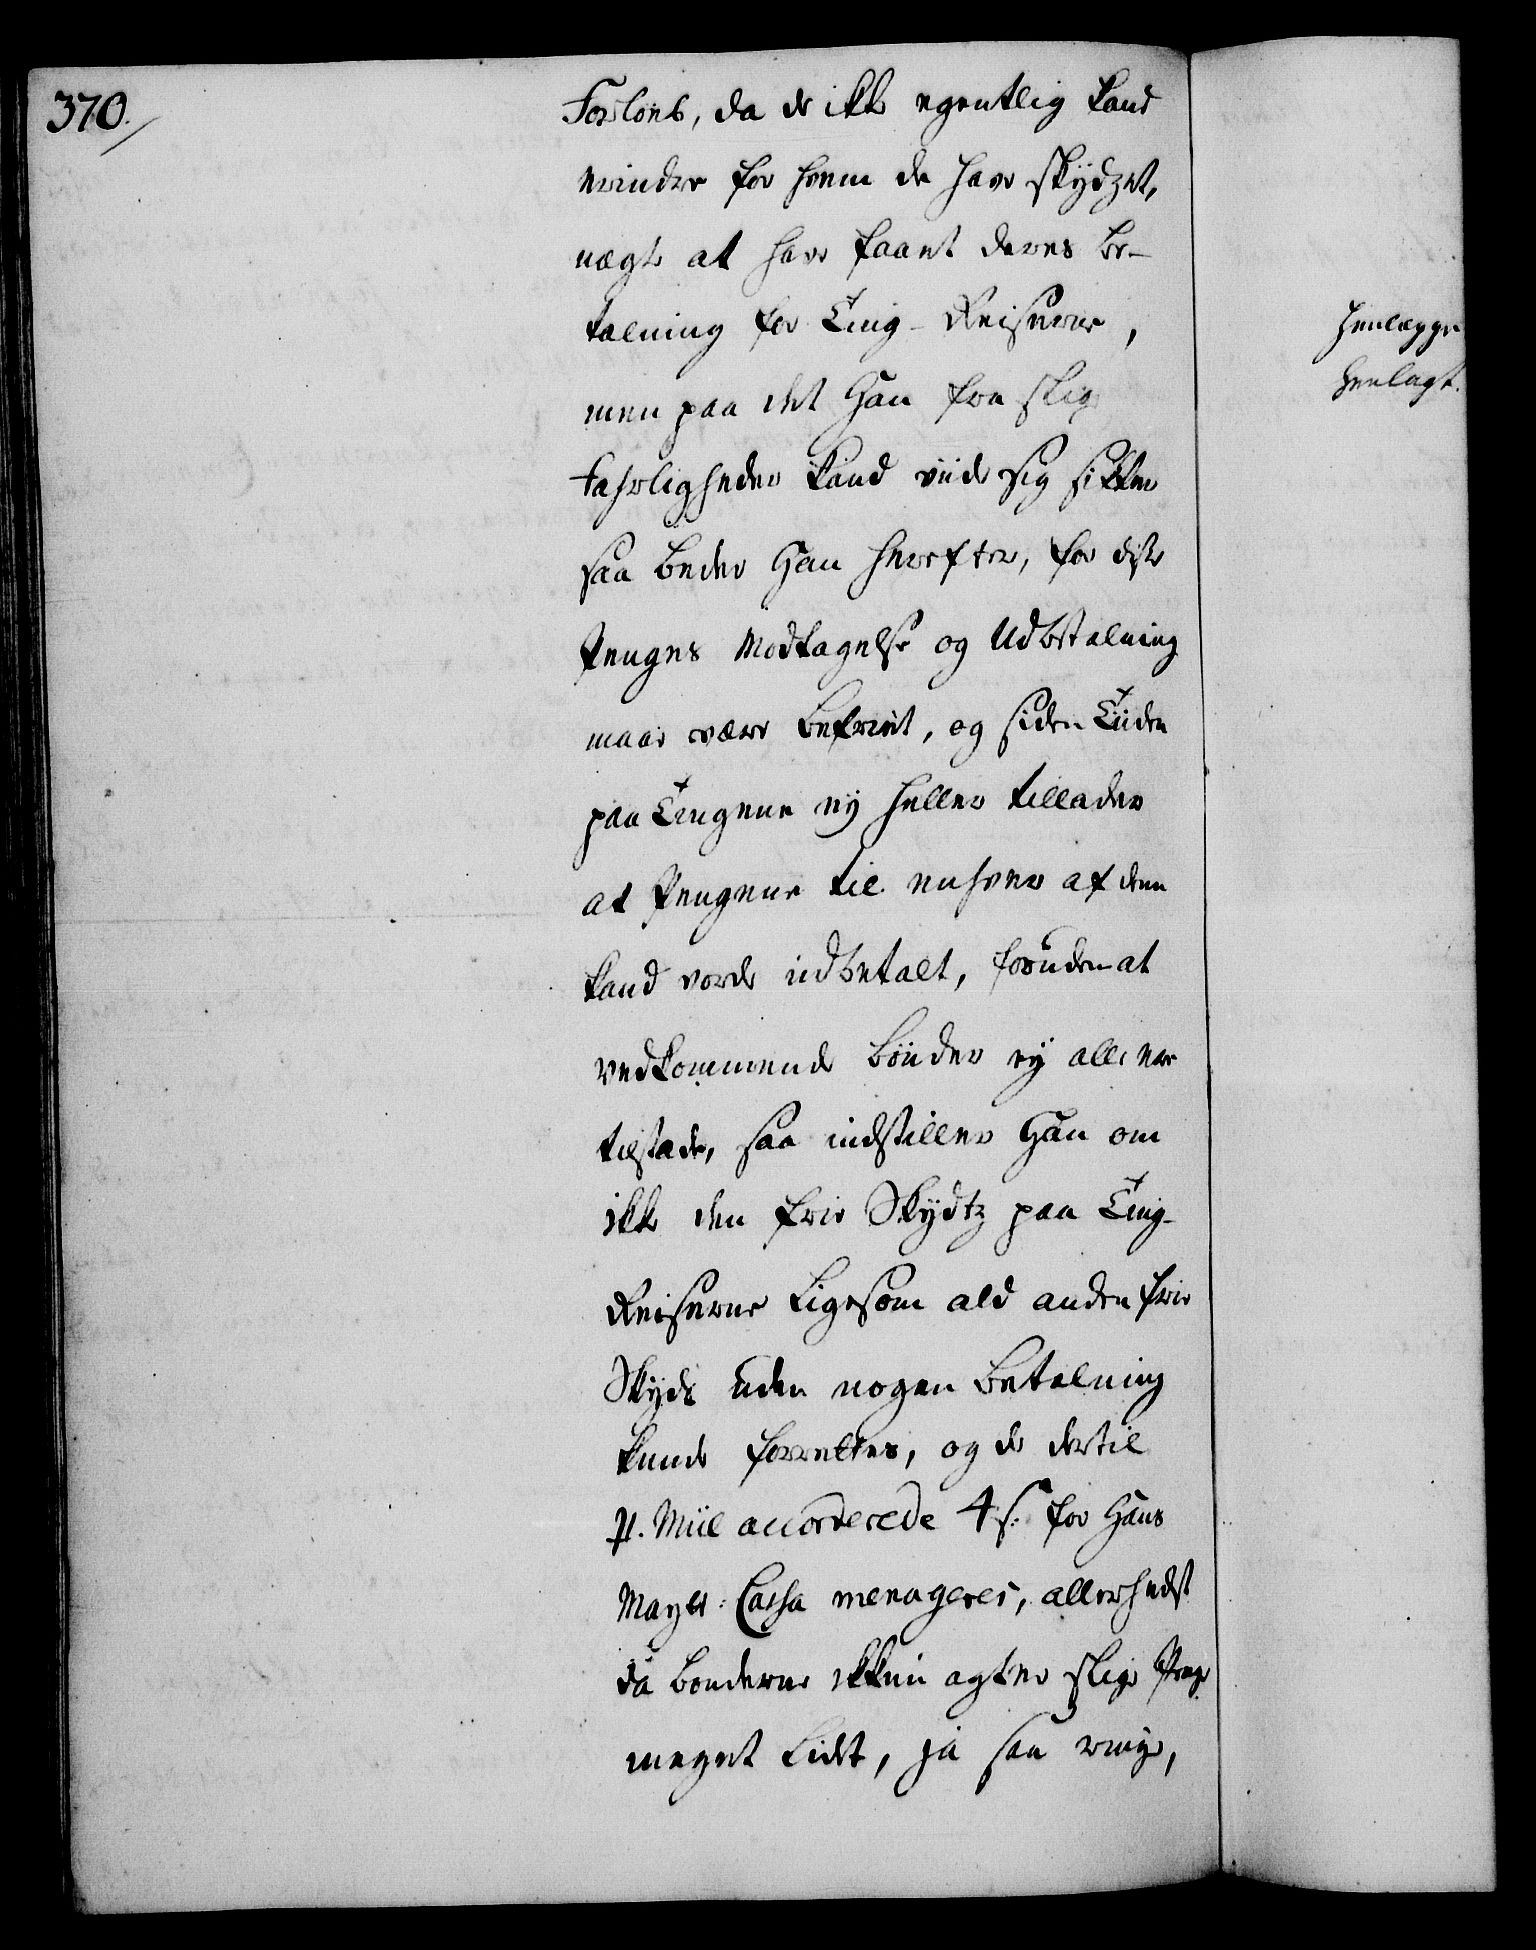 370.
Forløb, da de ikke egentlig kand
erindre for hvem de have skydzet,
nægte at have faaet deres be-
talning for Ting-Reiserne,
men paa det Han fra slig
farligheder kand viide sig sikker
saa beder Han herefter, for disse
Penges Modtagelse og Udbetalning
maae være befriet, og siden Tiiden
paa Tingene ey heller tillader
at Pengene til enhver af dem
kand vorde udbetalt, foruden at
vedkommende bönder ey alle ere
tilstæde, saa indstiller Han om
ikke den frie Skydtz paa Ting-
Reiserne ligesom ald anden frie
Skyds uden nogen betalning
kunde forrettes, og de dertil
pr. Miil accorderede 4 s. for Hans
Mayts. Cassa menageres, allerhelst
da bønderne ikkun agter slige Penge
meget lidt, ja saa ringe,
Henlægges
Henlagt.